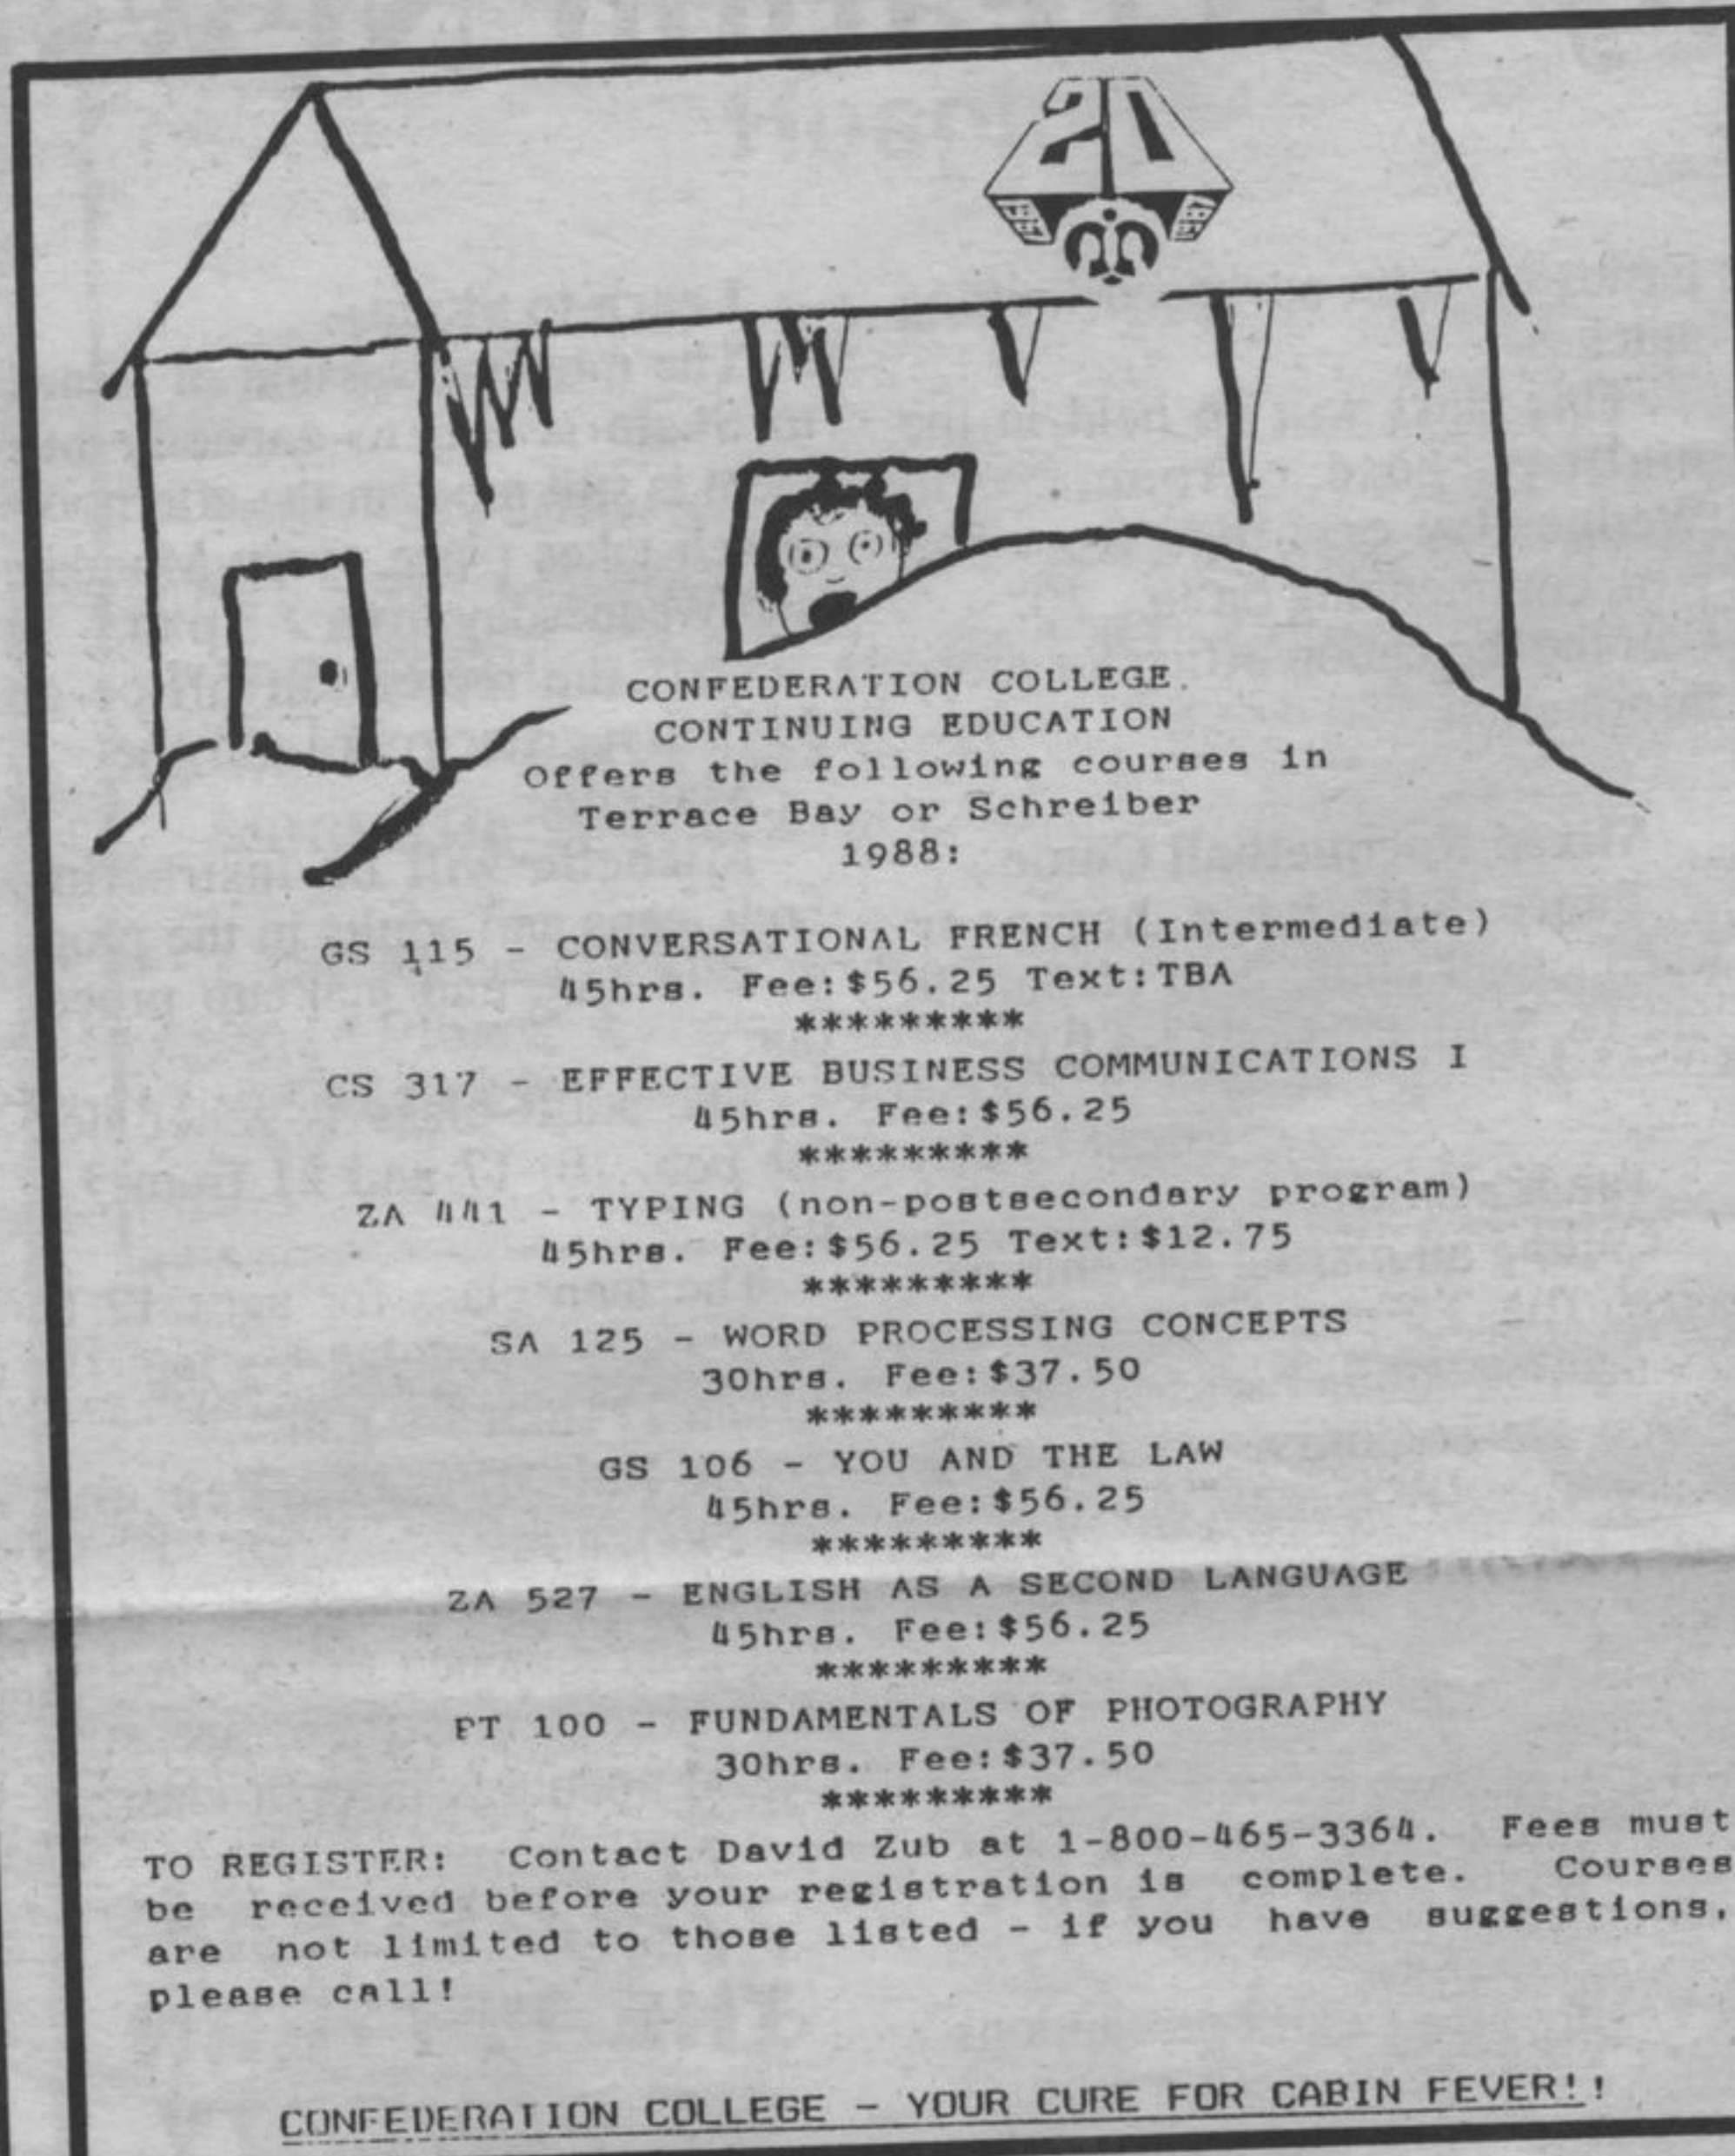 20
1967
1987
CONFEDERATION COLLEGE
CONTINUING EDUCATION
Offers the following courses in
Terrace Bay or Schreiber
1988:
GS 115 - CONVERSATIONAL FRENCH (Intermediate)
45hrs. Fee:$56.25 Text:TBA
*********
CS 317 - EFFECTIVE BUSINESS COMMUNICATIONS I
45hrs. Fee:$56.25
*********
ZA 441 - TYPING (non-postsecondary program)
45hrs. Fee:$56.25 Text:$12.75
*********
SA 125 - WORD PROCESSING CONCEPTS
30hrs. Fee:$37.50
*********
GS 106 - YOU AND THE LAW
45hrs. Fee:$56.25
*********
ZA 527 - ENGLISH AS A SECOND LANGUAGE
45hrs. Fee:$56.25
*********
PT 100 - FUNDAMENTALS OF PHOTOGRAPHY
30hrs. Fee:$37.50
*********
TO REGISTER: Contact David Zub at 1-800-465-3364. Fees must
be received before your registration is complete. Courses
are not limited to those listed - if you have suggestions,
please call!
CONFEDERATION COLLEGE - YOUR CURE FOR CABIN FEVER!!